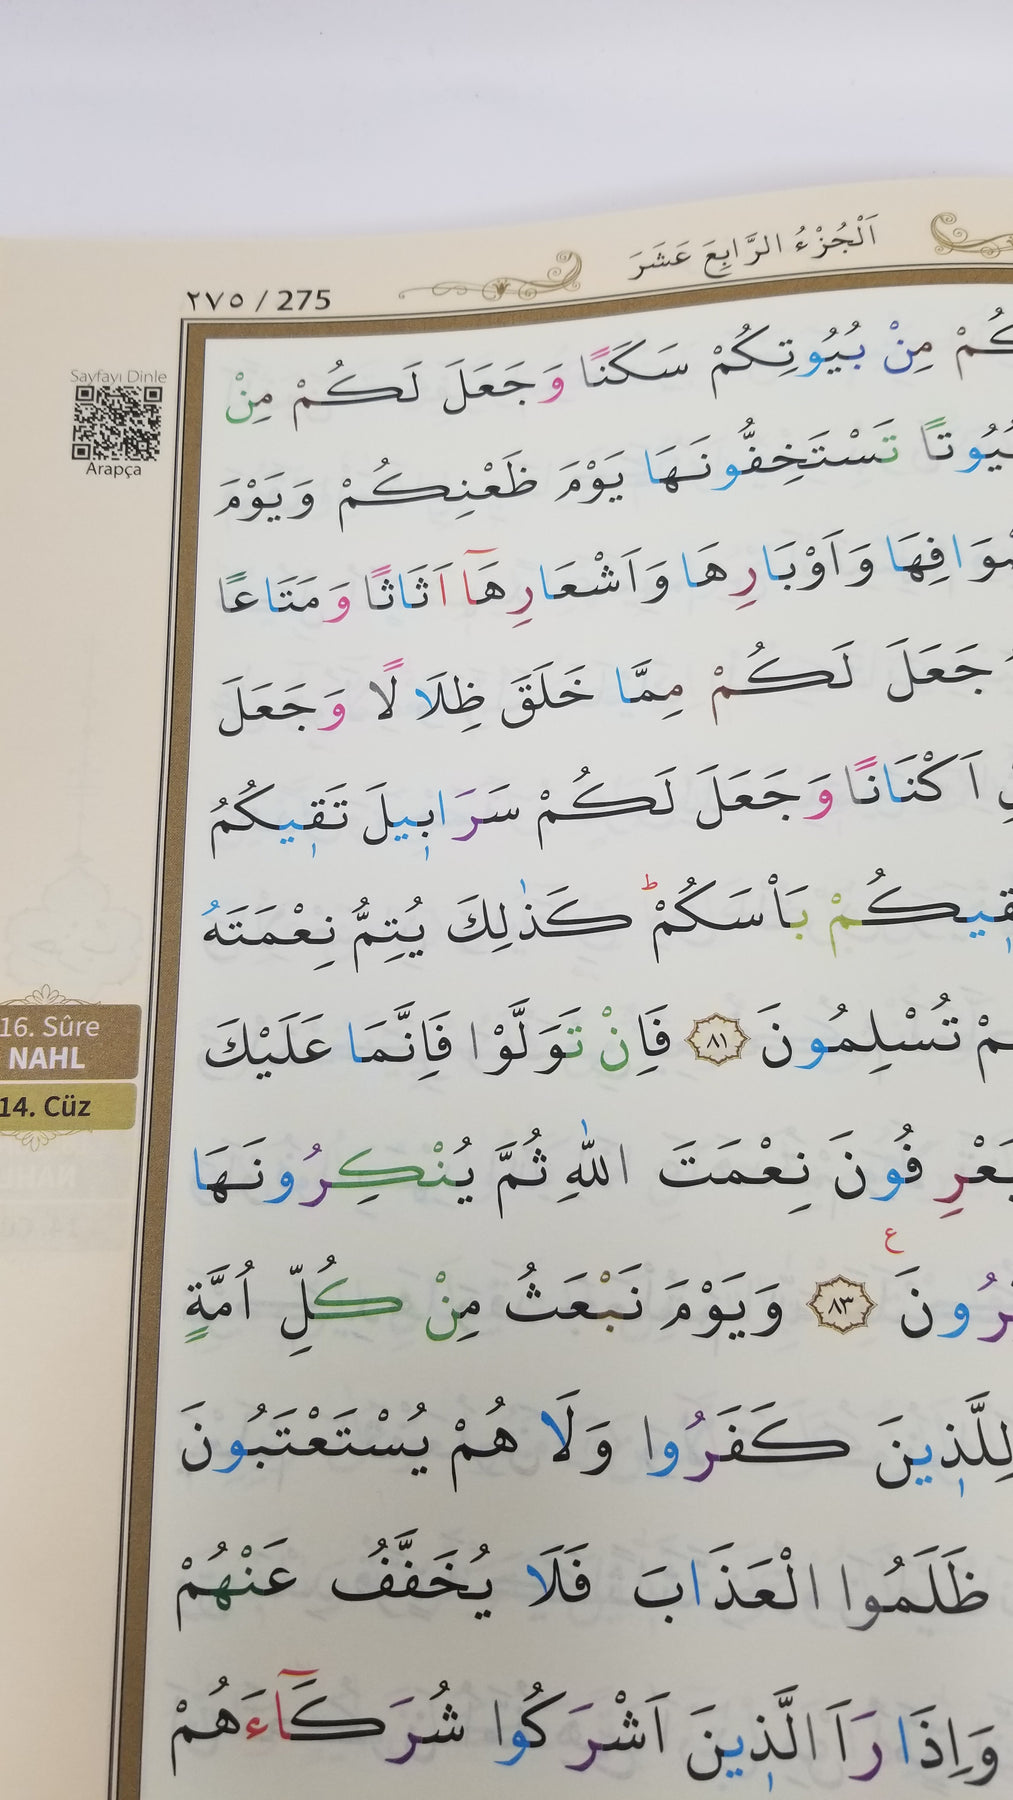 اَلْجُزْءُ الرَّابِعَ عَشَرَ
٢٧٥ / 275
Sayfayı Dinle
Arapça
مِنْ بُيُوتِكُمْ سَكَنًا وَجَعَلَ لَكُمْ مِنْ
تَسْتَخِفُّونَهَا يَوْمَ ظَعْنِكُمْ وَيَوْمَ
وَاَوْبَارِهَا وَاَشْعَارِهَآ اَثَاثًا وَمَتَاعًا
جَعَلَ لَكُمْ مِمَّا خَلَقَ ظِلَالًا وَجَعَلَ
اَكْنَانًا وَجَعَلَ لَكُمْ سَرَابٖيلَ تَقٖيكُمُ
بَأْسَكُمْ ۜ كَذٰلِكَ يُتِمُّ نِعْمَتَهُ
تُسْلِمُونَ ﴿٨١﴾ فَاِنْ تَوَلَّوْا فَاِنَّمَا عَلَيْكَ
نِعْمَتَ اللّٰهِ ثُمَّ يُنْكِرُونَهَا
﴿٨٣﴾ ع وَيَوْمَ نَبْعَثُ مِنْ كُلِّ اُمَّةٍ
لِلَّذٖينَ كَفَرُوا وَلَا هُمْ يُسْتَعْتَبُونَ
ظَلَمُوا الْعَذَابَ فَلَا يُخَفَّفُ عَنْهُمْ
وَاِذَا رَاَ الَّذٖينَ اَشْرَكُوا شُرَكَآءَهُمْ
16. Sûre
NAHL
14. Cüz